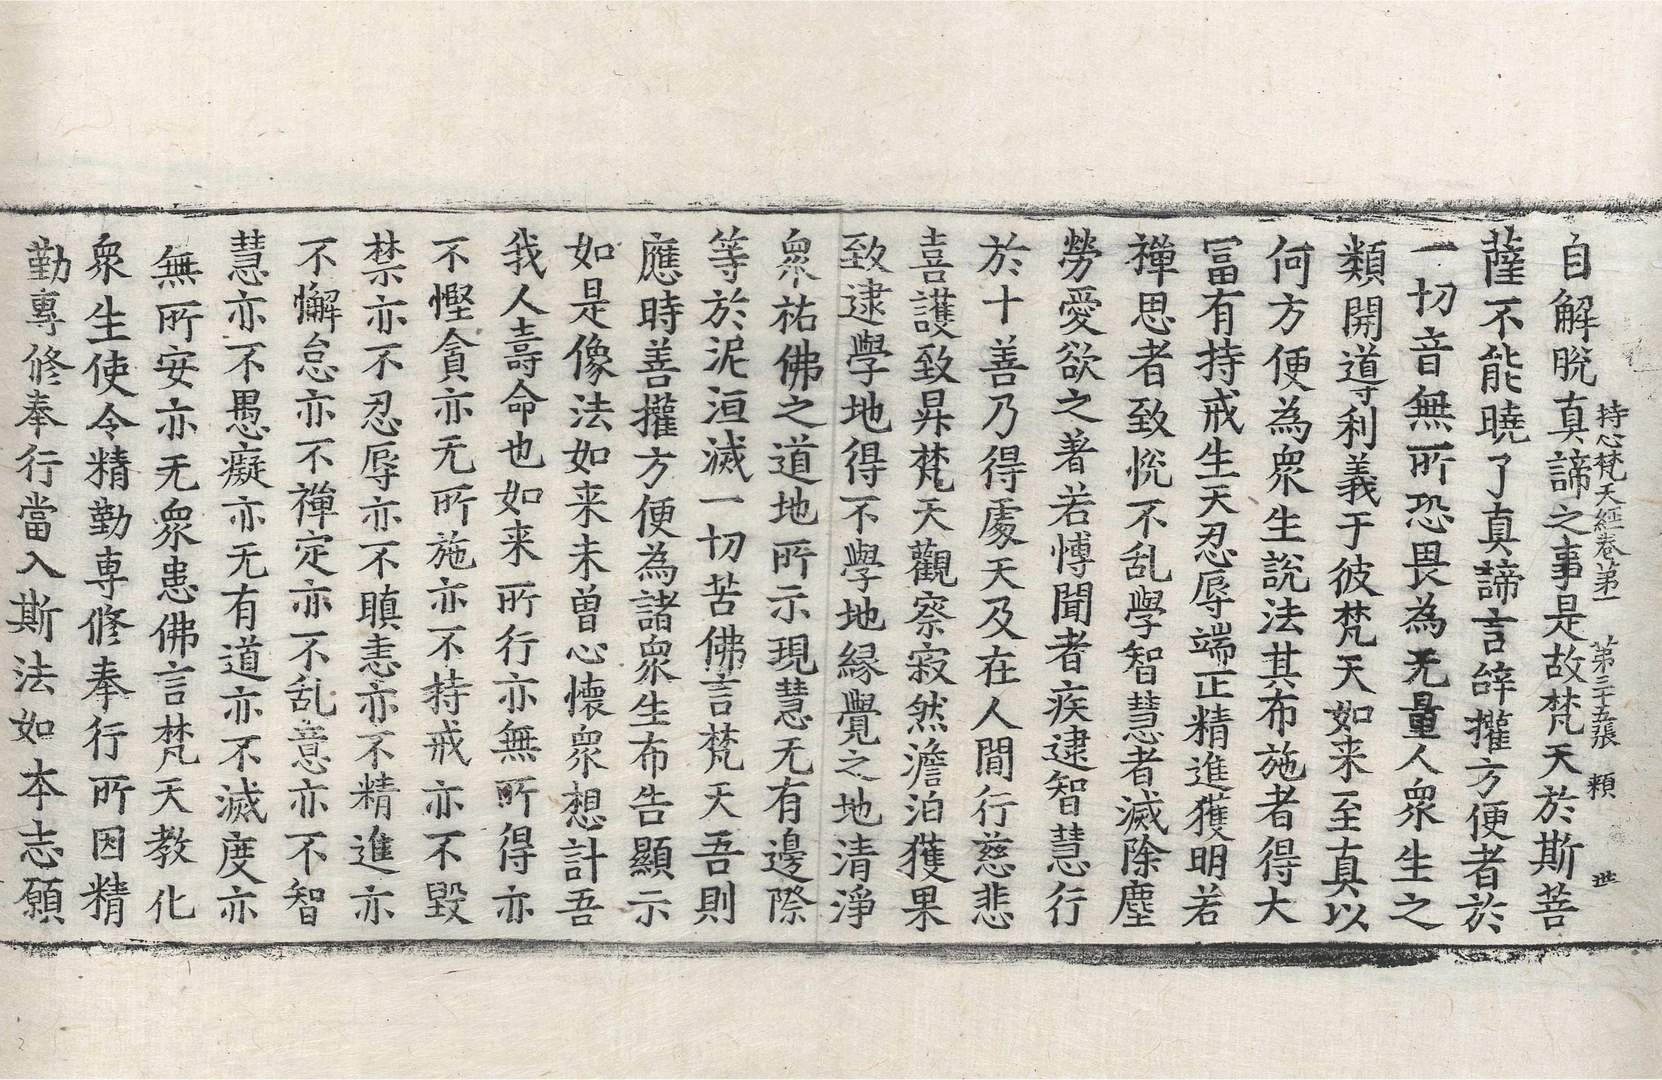 持心梵天經卷第一 第三十五張 頪 世
自解脫真諦之事是故梵天於斯菩
薩不能曉了真諦言辝攉方便者於
一切音無所恐畏為无量人衆生之
類開導利義于彼梵天如来至真以
何方便為衆生說法其布施者得大
冨有持戒生天忍辱端正精進獲明若
禪思者致恱不乱學智慧者滅除塵
勞愛欲之著若愽聞者疾逮智慧行
於十善乃得處天及在人間行慈悲
喜護致昇梵天觀察寂然澹泊獲果
致逮學地得不學地縁覺之地清淨
衆祐佛之道地所示現慧无有邊際
等於泥洹滅一切苦佛言梵天吾則
應時善攉方便為諸衆生布告顯示
如是像法如来未曽心懷衆想計吾
我人壽命也如来所行亦無所得亦
不慳貪亦无所施亦不持戒亦不毀
禁亦不忍辱亦不瞋恚亦不精進亦
不懈怠亦不禪定亦不乱意亦不智
慧亦不愚癡亦无有道亦不滅度亦
無所安亦无衆患佛言梵天教化
衆生使令精勤專修奉行所因精
勤專修奉行當入斯法如本志願